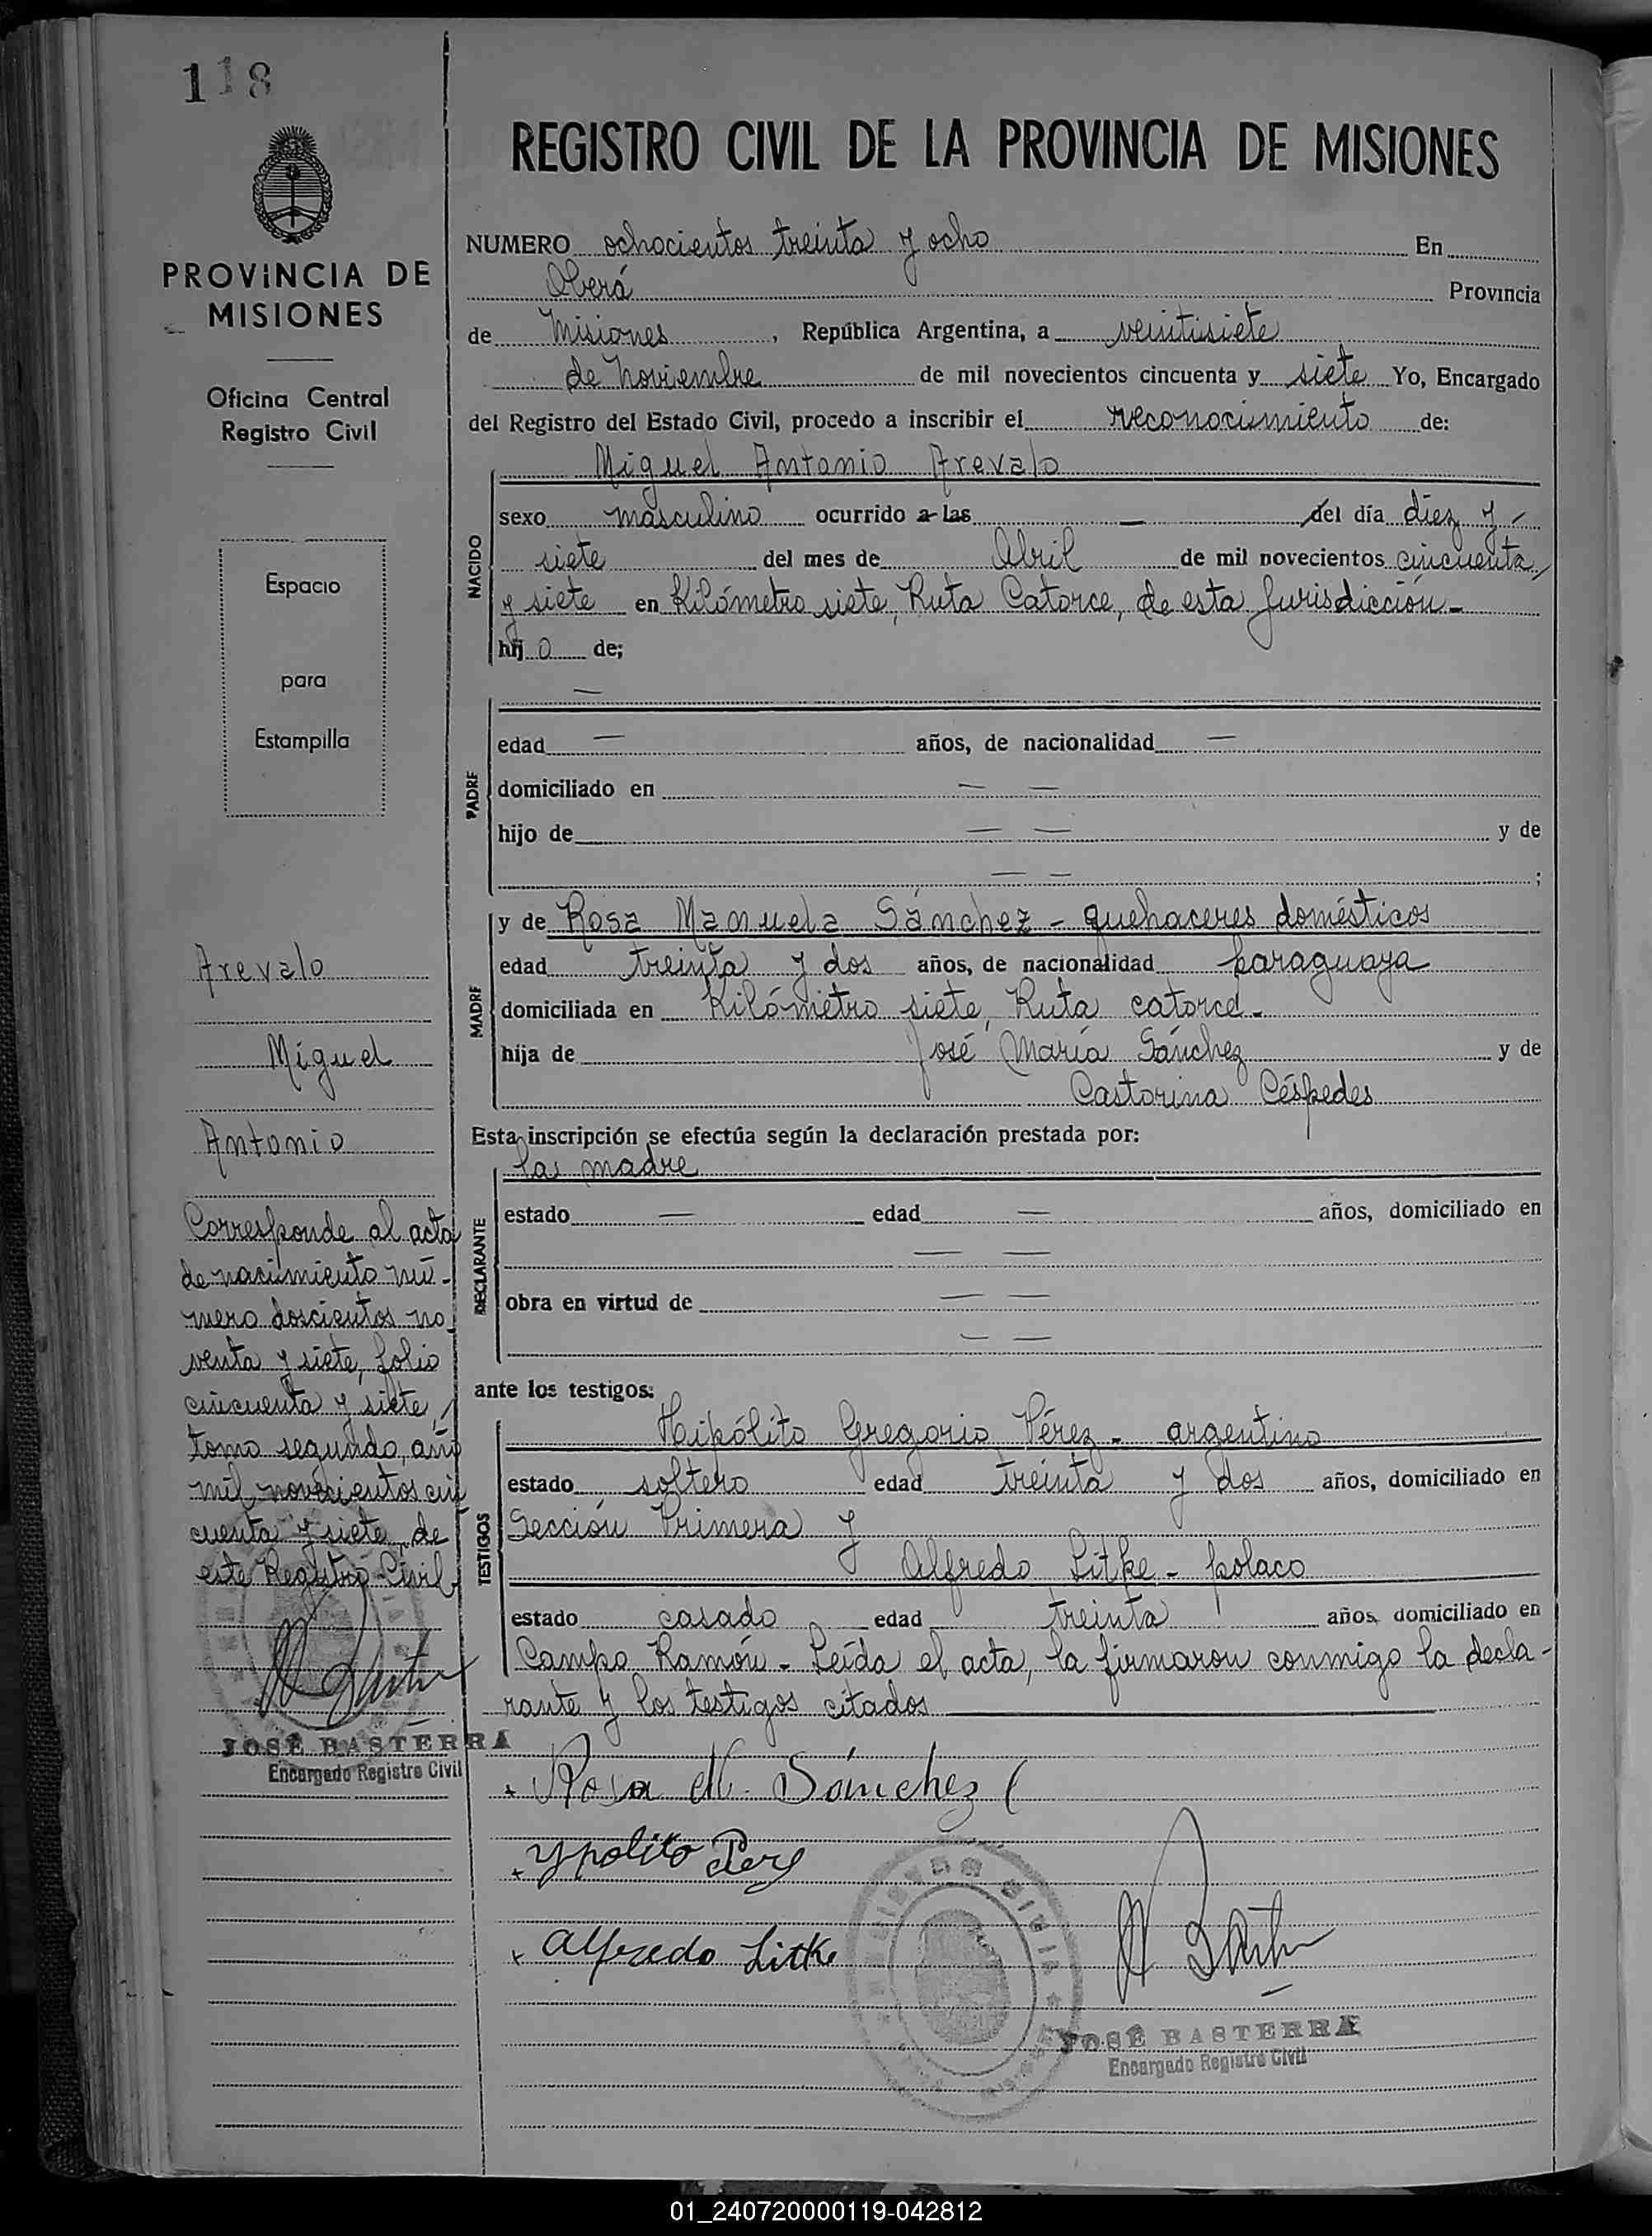 118
PROVINCIA DE
MISIONES
Oficina Central
Registro Civil
Espacio
para
Estampilla
Arevalo
Miguel
Antonio
Corresponde al acta
de nacimiento nú-
mero doscientos no-
venta y siete, folio
cincuenta y siete,
tomo segundo, año
mil novecientos cin
cuenta y siete, de
este Registro Civil
JOSÉ BASTERRA
Encargado Registro Civil
REGISTRO CIVIL DE LA PROVINCIA DE MISIONES
NUMERO ochocientos treinta y ocho En
Oberá Provincia
de Misiones, República Argentina, a veintisiete
de Noviembre de mil novecientos cincuenta y siete Yo, Encargado
del Registro del Estado Civil, procedo a inscribir el reconocimiento de:
Miguel Antonio Arevalo
NACIDO
sexo masculino ocurrido a las — del día diez y -
siete del mes de Abril de mil novecientos cincuenta
y siete en Kilómetro siete, Ruta Catorce, de esta Jurisdicción -
hij o de;
—
PADRE
edad — años, de nacionalidad —
domiciliado en — —
hijo de — — y de
— — ;
MADRE
y de Rosa Manuela Sánchez - quehaceres domésticos
edad treinta y dos años, de nacionalidad paraguaya
domiciliada en Kilómetro siete, Ruta catorce -
hija de José María Sánchez y de
Castorina Céspedes
Esta inscripción se efectúa según la declaración prestada por:
la madre
DECLARANTE
estado — edad — años, domiciliado en
— —
obra en virtud de — —
— —
ante los testigos:
TESTIGOS
Hipólito Gregorio Pérez - argentino
estado soltero edad treinta y dos años, domiciliado en
Sección Primera y
Alfredo Litke - polaco
estado casado edad treinta años, domiciliado en
Campo Ramón - Leída el acta, la firmaron conmigo la decla-
rante y los testigos citados
Rosa M. Sánchez
Ypolito Perez
Alfredo Litke
JOSÉ BASTERRA
Encargado Registro Civil
01_240720000119-042812